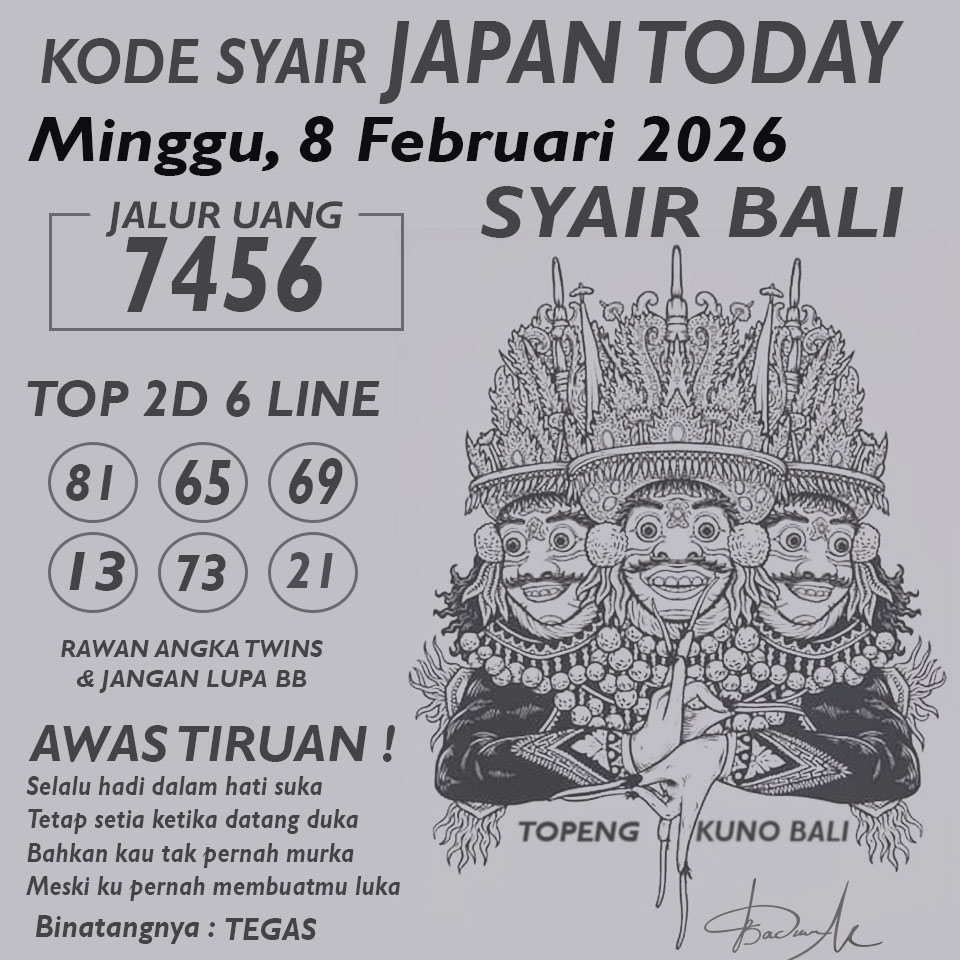 KODE SYAIR JAPAN TODAY
Minggu, 8 Februari 2026
SYAIR BALI
JALUR UANG
7456
TOP 2D 6 LINE
81 65 69
13 73 21
RAWAN ANGKA TWINS
& JANGAN LUPA BB
AWAS TIRUAN !
Selalu hadi dalam hati suka
Tetap setia ketika datang duka
Bahkan kau tak pernah murka
Meski ku pernah membuatmu luka
Binatangnya : TEGAS
TOPENG KUNO BALI